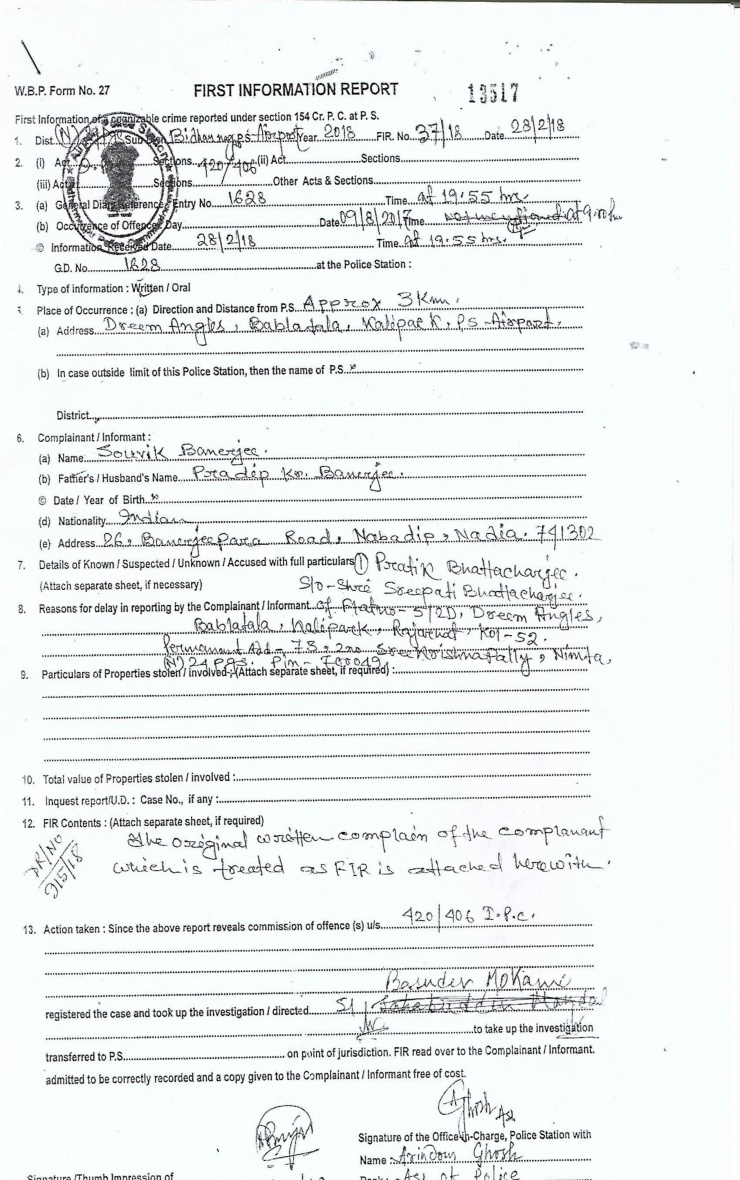 W.B.P. Form No. 27 FIRST INFORMATION REPORT 13517
First Information of a cognizable crime reported under section 154 Cr. P. C. at P. S.
1. Dist. (N) Sub Bidhannagar P.S. Airport Year 2018 FIR. No. 37/18 Date 28/2/18
2. (i) Act Sections 420/406 (ii) Act Sections
(iii) Act Sections Other Acts & Sections
3. (a) General Diary Reference: Entry No. 1628 Time at 19:55 hrs.
(b) Occurrence of Offence Day Date 09/8/2017 Time at 9.00 hrs
© Information Received Date 28/2/18 Time at 19:55 hrs.
G.D. No. 1628 at the Police Station :
4. Type of information : Written / Oral
5. Place of Occurrence : (a) Direction and Distance from P.S. Approx 3 Km.
(a) Address Dreem Angles, Bablatala, Kalipark, PS - Airport.
(b) In case outside limit of this Police Station, then the name of P.S. x
District
6. Complainant / Informant :
(a) Name Souvik Banerjee.
(b) Father's / Husband's Name Pradip Kr. Banerjee.
© Date / Year of Birth x
(d) Nationality Indian
(e) Address 26, Banerjeepara Road, Nabadip, Nadia. 741302
7. Details of Known / Suspected / Unknown / Accused with full particulars (1) Pratik Bhattacharjee.
(Attach separate sheet, if necessary) S/o - Shre Sreepati Bhattacharjee.
8. Reasons for delay in reporting by the Complainant / Informant of Flat no - 5/2D, Dreem Angles,
Bablatala, Kalipark, Rajarhat, Kol-52.
Permanant Add - 73, 2no Sreekrishna Pally, Nimta,
(N) 24 Pgs. Pin - 700049
9. Particulars of Properties stolen / involved : (Attach separate sheet, if required) :
10. Total value of Properties stolen / involved :
11. Inquest report/U.D. : Case No., if any :
12. FIR Contents : (Attach separate sheet, if required)
The original written complain of the complanant
9/5/18 which is treated as FIR is attached herewith.
13. Action taken : Since the above report reveals commission of offence (s) u/s. 420/406 I.P.C.
Basudev Mokami
registered the case and took up the investigation / directed SI
to take up the investigation
transferred to P.S. on point of jurisdiction. FIR read over to the Complainant / Informant.
admitted to be correctly recorded and a copy given to the Complainant / Informant free of cost.
AGhosh ASI
Signature of the Office-in-Charge, Police Station with
Name : Arindom Ghosh
Signature/Thumb Impression of ASI of Police